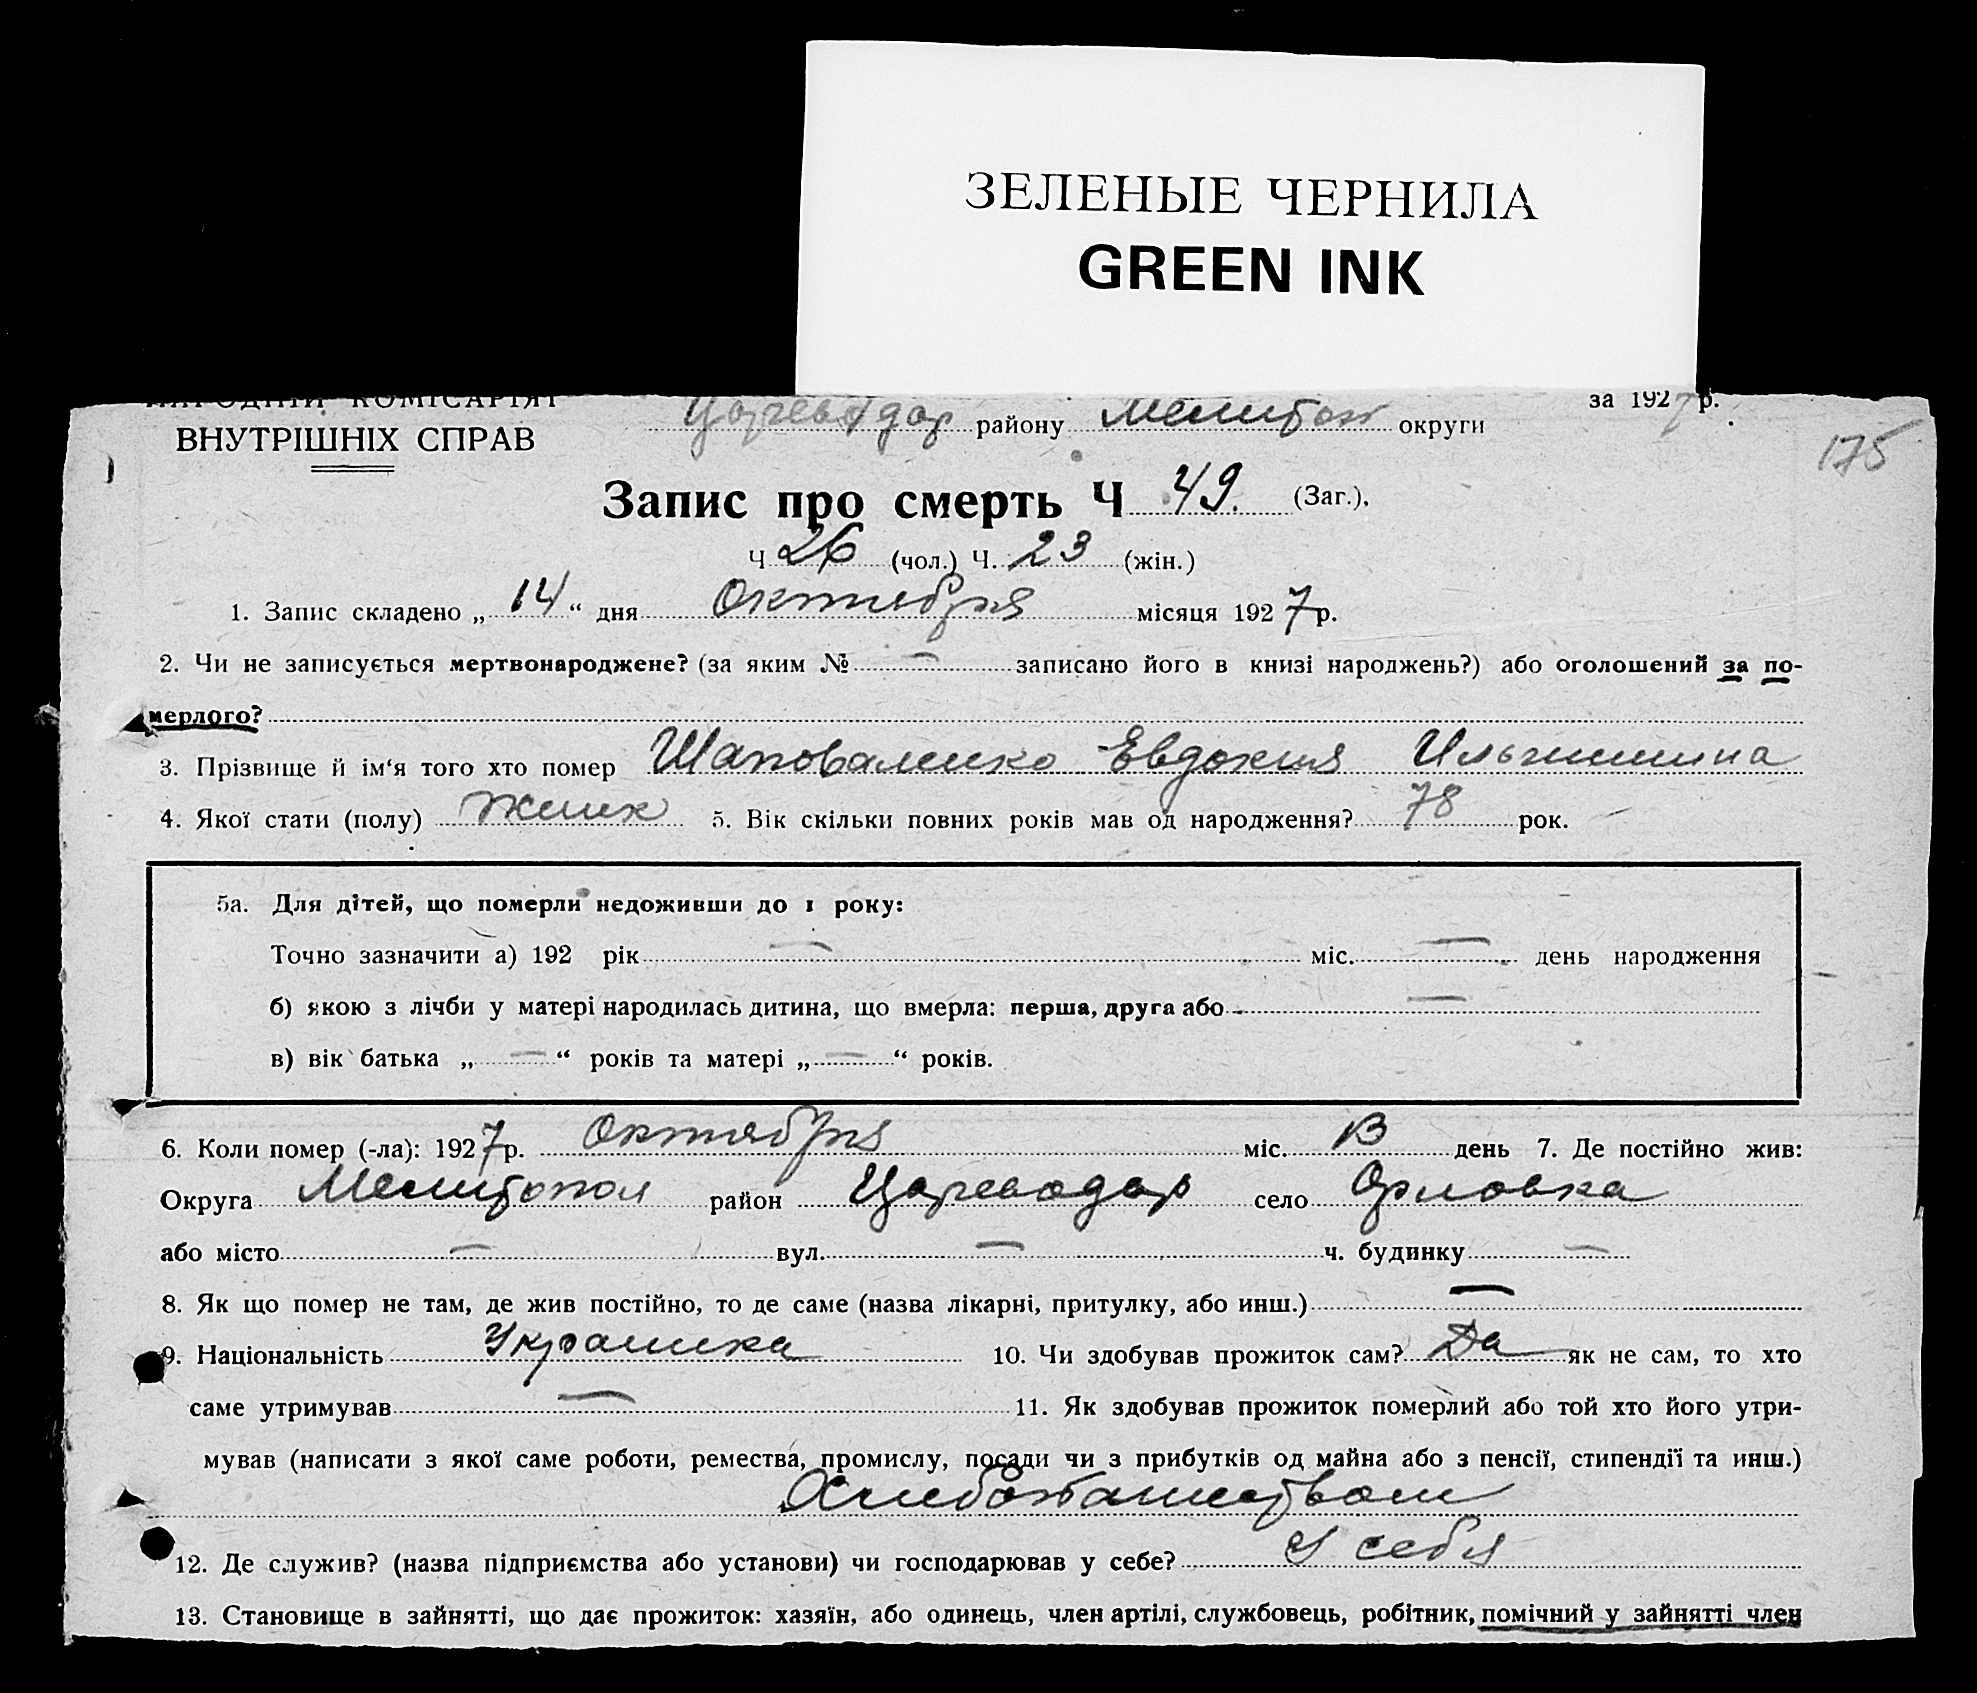 ЗЕЛЕНЫЕ ЧЕРНИЛА
GREEN INK
НАРОДНІЙ КОМІСАРІЯТ
ВНУТРІШНІХ СПРАВ
Цареводар району Мелитоп округи за 1927 р.
175
Запис про смерть Ч 49. (Заг.).
Ч 26 (чол.) Ч. 23 (жін.)
1. Запис складено „ 14 “ дня Октября місяця 1927 р.
2. Чи не записується мертвонароджене? (за яким № — записано його в книзі народжень?) або оголошений за по-
мерлого?
3. Прізвище й ім‘я того хто помер Шаповаленко Евдокия Ильинишна
4. Якої стати (полу) женск 5. Вік скільки повних років мав од народження? 78 рок.
5а. Для дітей, що померли недоживши до 1 року:
Точно зазначити а) 192 рік — міс. — день народження
б) якою з лічби у матері народилась дитина, що вмерла: перша, друга або —
в) вік батька „ — “ років та матері „ — “ років.
6. Коли помер (-ла): 1927 р. Октября міс. 13 день 7. Де постійно жив:
Округа Мелитопол район Цареводар село Орловка
або місто — вул. — ч. будинку —
8. Як що помер не там, де жив постійно, то де саме (назва лікарні, притулку, або инш.) —
9. Національність Украинка 10. Чи здобував прожиток сам? Да як не сам, то хто
саме утримував — 11. Як здобував прожиток померлий або той хто його утри-
мував (написати з якої саме роботи, ремества, промислу, посади чи з прибутків од майна або з пенсії, стипендії та инш.)
Хлебопашеством
12. Де служив? (назва підприємства або установи) чи господарював у себе? У себя
13. Становище в зайнятті, що дає прожиток: хазяїн, або одинець, член артілі, службовець, робітник, помічний у зайнятті член